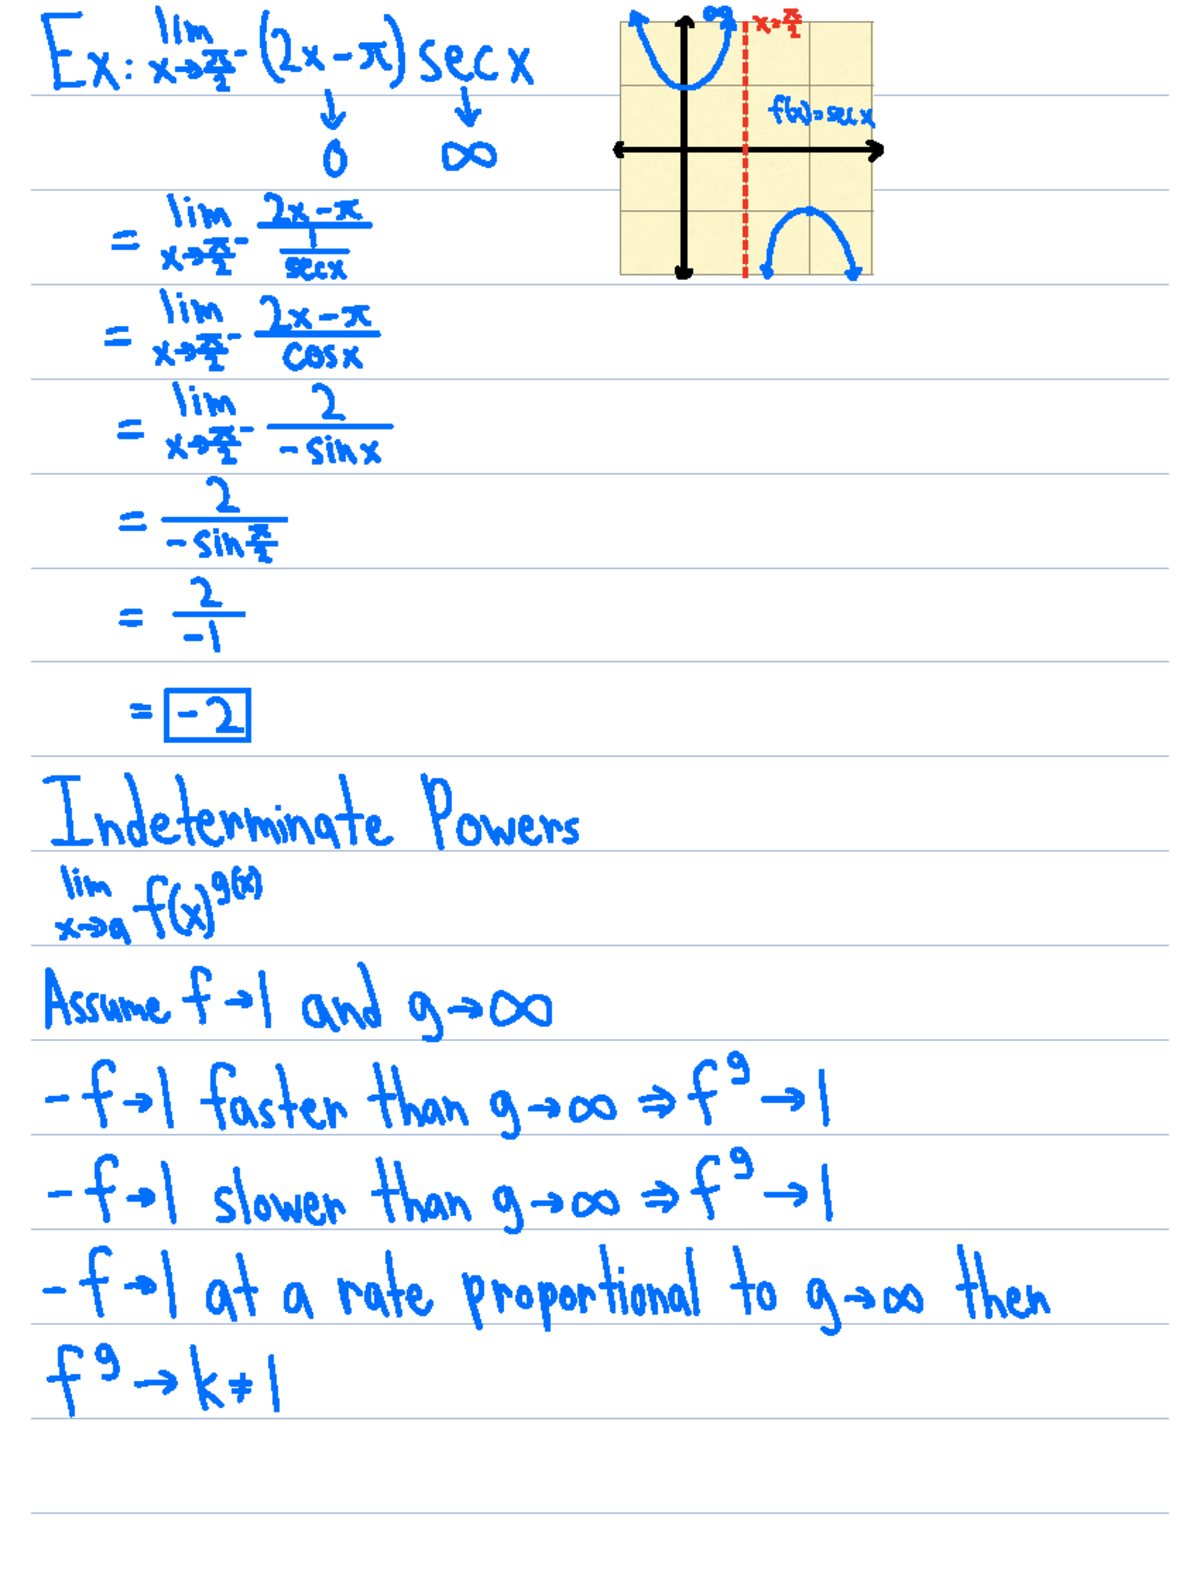 Ex: lim x→π/2⁻ (2x-π) sec x
↓ ↓
0 ∞
= lim x→π/2⁻ (2x-π)/(1/sec x)
= lim x→π/2⁻ (2x-π)/(cos x)
= lim x→π/2⁻ 2/(-sin x)
= 2/(-sin π/2)
= 2/-1
= -2
∞
x=π/2
f(x)=sec x
Indeterminate Powers
lim x→a f(x)^g(x)
Assume f→1 and g→∞
-f→1 faster than g→∞ ⇒ f^g→1
-f→1 slower than g→∞ ⇒ f^g→1
-f→1 at a rate proportional to g→∞ then
f^g→k≠1